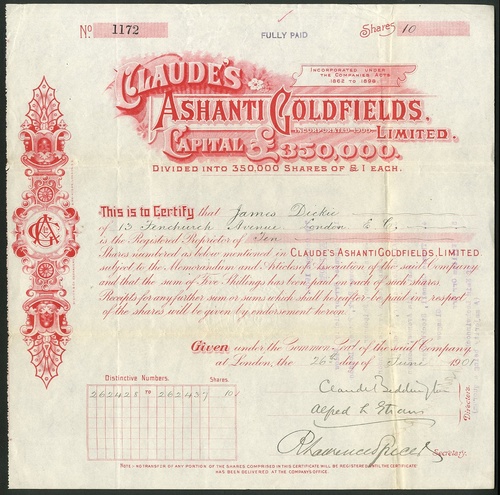 No. 1172
FULLY PAID
Shares 10
CLAUDE'S
INCORPORATED UNDER
THE COMPANIES ACTS
1862 TO 1898.
ASHANTI GOLDFIELDS,
INCORPORATED 1900
LIMITED.
CAPITAL £350,000.
DIVIDED INTO 350,000 SHARES OF £1 EACH.
This is to Certify that James Dickie
of 13 Fenchurch Avenue London E.C.
is the Registered Proprietor of Ten
Shares numbered as below mentioned in CLAUDE'S ASHANTI GOLDFIELDS, LIMITED
subject to the Memorandum and Articles of Association of the said Company
and that the sum of Five Shillings has been paid on each of such shares
Receipts for any further sum or sums which shall hereafter be paid in respect
of the shares will be given by endorsement hereon.
Given under the Common Seal of the said Company
at London, the 26th day of June 1901
Distinctive Numbers. Shares
262428 TO 262437 10
Claude Beddington
Alfred L Straus
Directors.
Secretary.
NOTE:- NO TRANSFER OF ANY PORTION OF THE SHARES COMPRISED IN THIS CERTIFICATE WILL BE REGISTERED UNTIL THE CERTIFICATE
HAS BEEN DELIVERED AT THE COMPANY'S OFFICE.